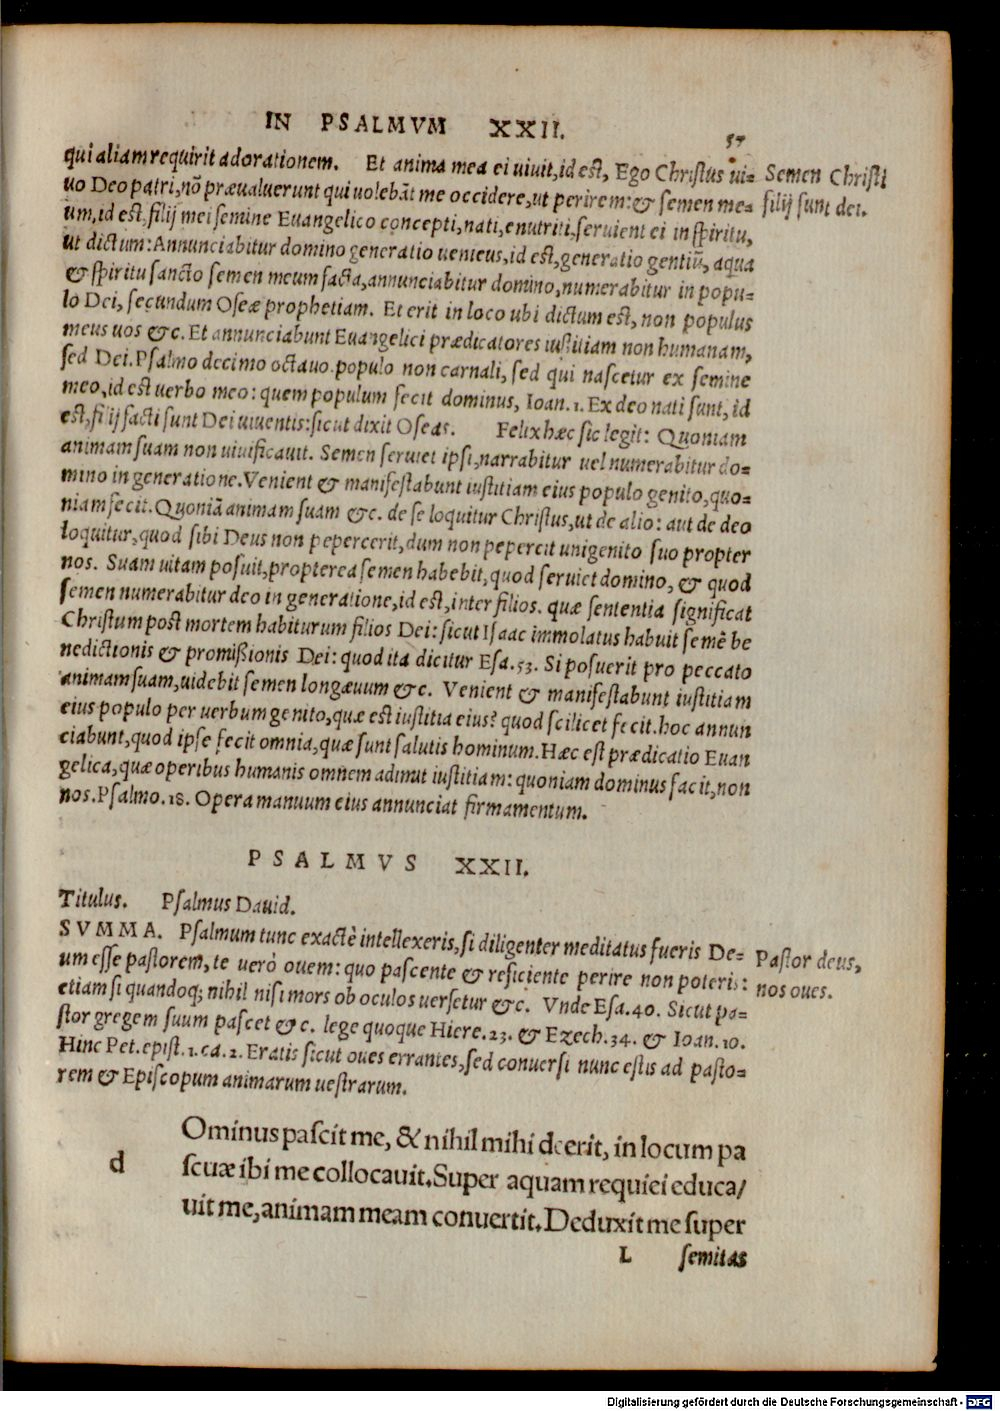 IN PSALMVM XXII.
57
qui aliam requirit adorationem. Et anima mea ei uiuit, id est, Ego Christus ui=
uo Deo patri, nō præualuerunt qui uolebāt me occidere, ut perirem: & semen me=
um, id est, filij mei semine Euangelico concepti, nati, enutriti, seruient ei in spiritu,
ut dictum: Annunciabitur domino generatio uenieus, id est, generatio gentiū, aqua
& spiritu sancto semen meum facta, annunciabitur domino, numerabitur in popu=
lo Dei, secundum Oseæ prophetiam. Et erit in loco ubi dictum est, non populus
meus uos &c. Et annunciabunt Euangelici prædicatores iustitiam non humanam,
sed Dei. Psalmo decimo octauo. populo non carnali, sed qui nascetur ex semine
meo, id est uerbo meo: quem populum fecit dominus, Ioan. 1. Ex deo nati sunt, id
est, filij facti sunt Dei uiuentis: sicut dixit Oseas. Felix hæc sic legit: Quoniam
animam suam non uiuificauit. Semen seruiet ipsi, narrabitur uel numerabitur do=
mino in generatione. Venient & manifestabunt iustitiam eius populo genito, quo=
niam fecit. Quoniā animam suam &c. de se loquitur Christus, ut de alio: aut de deo
loquitur, quod sibi Deus non pepercerit, dum non pepercit unigenito suo propter
nos. Suam uitam posuit, propterea semen habebit, quod seruiet domino, & quod
semen numerabitur deo in generatione, id est, inter filios. quæ sententia significat
Christum post mortem habiturum filios Dei: sicut Isaac immolatus habuit semē be
nedictionis & promißionis Dei: quod ita dicitur Esa. 53. Si posuerit pro peccato
animam suam, uidebit semen longæuum &c. Venient & manifestabunt iustitiam
eius populo per uerbum genito, quæ est iustitia eius? quod scilicet fecit. hoc annun
ciabunt, quod ipse fecit omnia, quæ sunt salutis hominum. Hæc est prædicatio Euan
gelica, quæ operibus humanis omnem adimit iustitiam: quoniam dominus facit, non
nos. Psalmo. 18. Opera manuum eius annunciat firmamentum.
Semen Christi
filij sunt dei.
PSALMVS XXII.
Titulus. Psalmus Dauid.
SVMMA. Psalmum tunc exactè intellexeris, si diligenter meditatus fueris De=
um esse pastorem, te uerò ouem: quo pascente & reficiente perire non poteris:
etiamsi quandoq; nihil nisi mors ob oculos uersetur &c. Vnde Esa. 40. Sicut pa=
stor gregem suum pascet &c. lege quoque Hiere. 23. & Ezech. 34. & Ioan. 10.
Hinc Pet. epist. 1. ca. 2. Eratis sicut oues errantes, sed conuersi nunc estis ad pasto=
rem & Episcopum animarum uestrarum.
Pastor deus,
nos oues.
d
Ominus pascit me, & nihil mihi deerit, in locum pa
scuæ ibi me collocauit. Super aquam requiei educa/
uit me, animam meam conuertit. Deduxit me super
L semitas
Digitalisierung gefördert durch die Deutsche Forschungsgemeinschaft - DFG